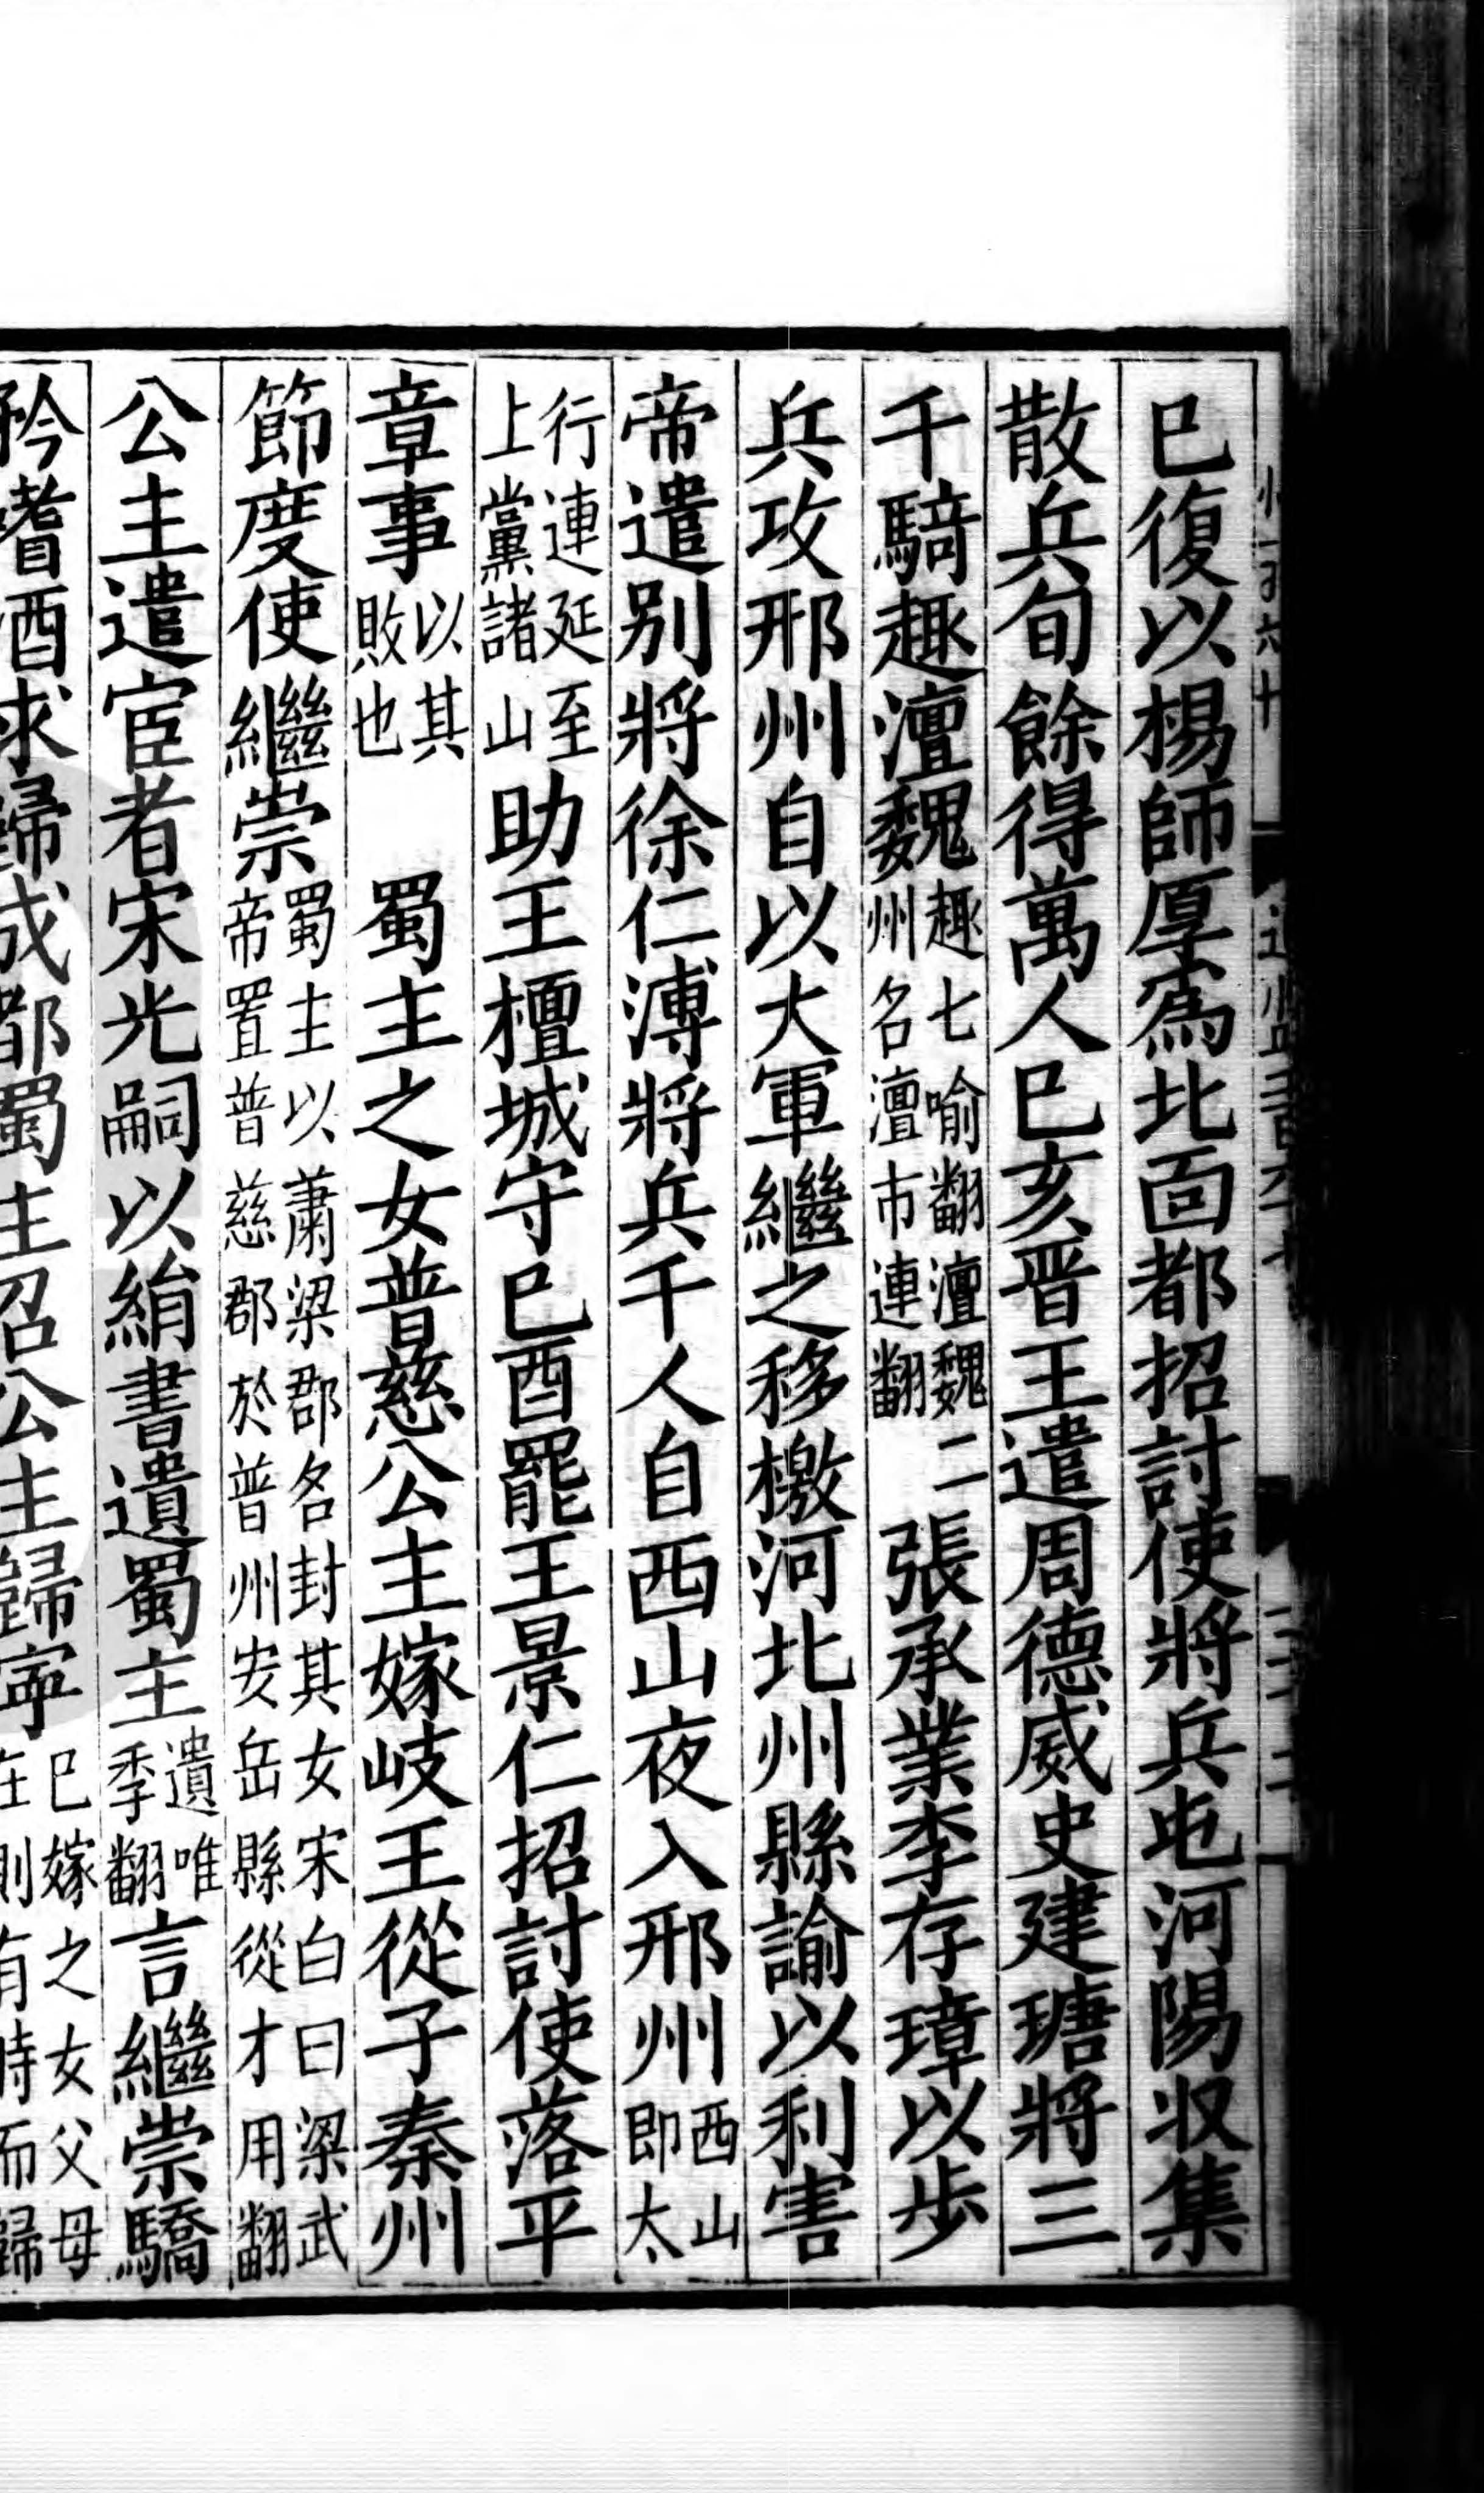 巳復以楊師厚爲北面都招討使將兵屯河陽収集
散兵旬餘得萬人巳亥晋王遣周德威史建瑭將三
千騎趣澶魏趣七喻翻澶魏二州名澶市連翻張承業李存璋以步
兵攻邢州自以大軍繼之移檄河北州縣諭以利害
帝遣別將徐仁溥將兵千人自西山夜入邢州西山即太
行連延至上黨諸山助王檀城守巳酉罷王景仁招討使落平
章事以其敗也　蜀主之女普慈公主嫁岐王從子秦州
節度使繼崇蜀主以蕭梁郡名封其女宋白曰梁武帝置普慈郡於普州安岳縣從才用翻
公主遣宦者宋光嗣以絹書遺蜀主遺唯季翻言繼崇驕
矜嗜酒求歸成都蜀主召公主歸寧巳嫁之女父母在則有時而歸